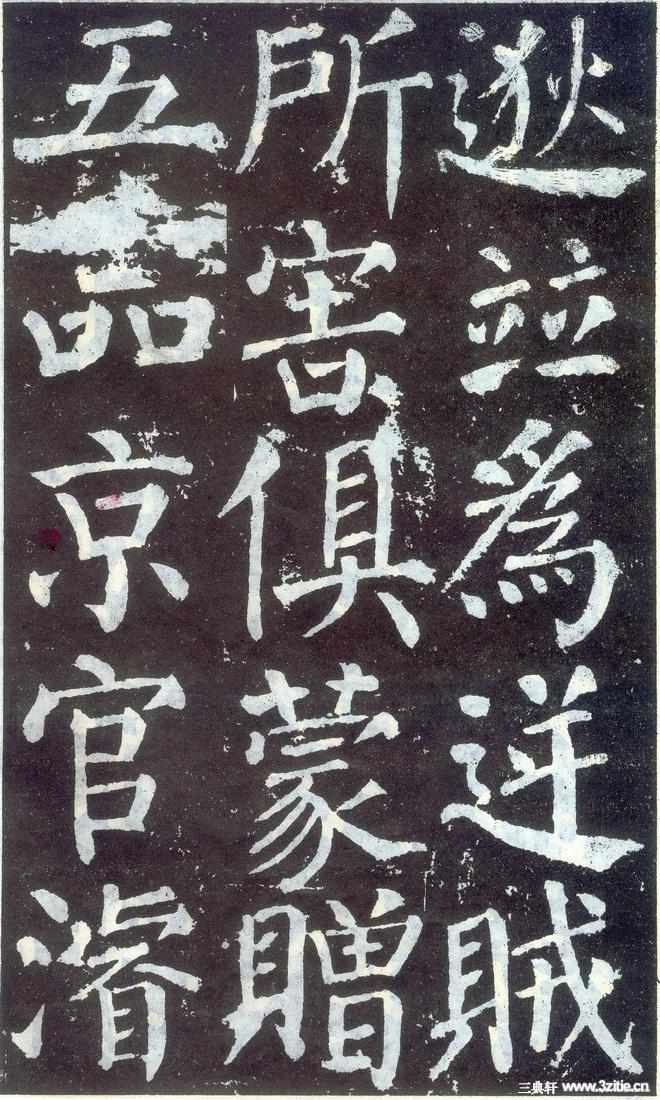 逖竝爲逆賊
所害俱蒙贈
五品京官濬
三典轩 www.3zitie.cn